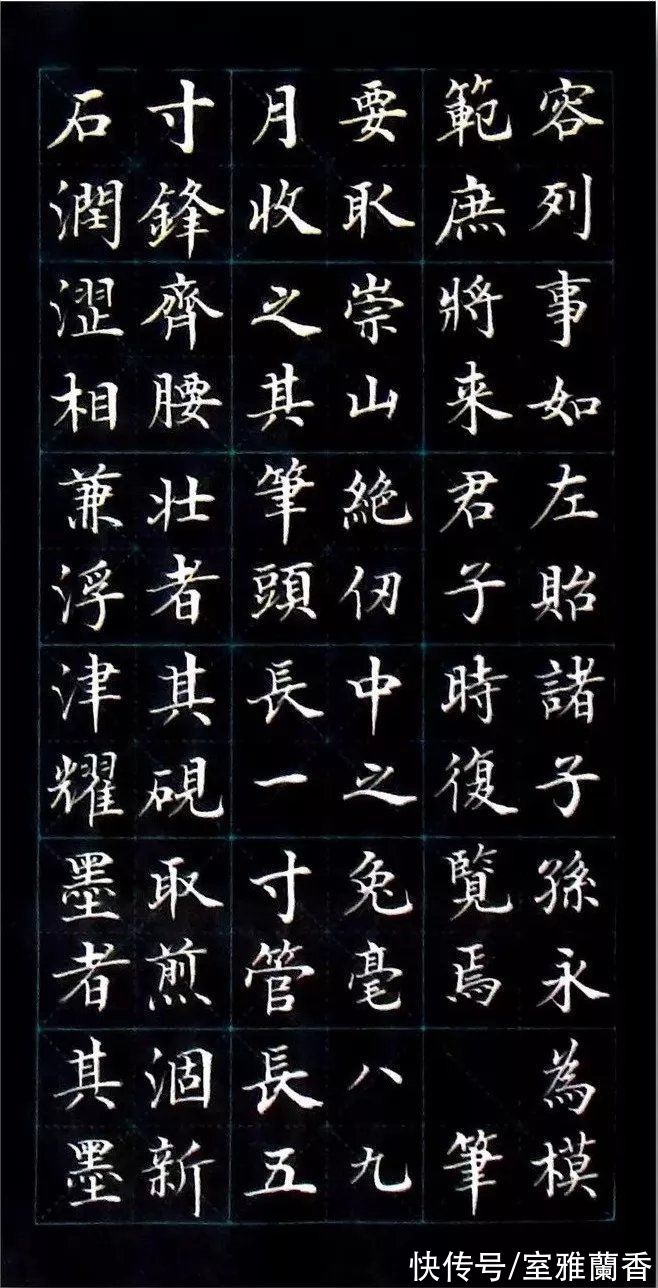 容列事如左貽諸子孫永為模
範庶將来君子時復覽焉 筆
要取崇山絶仞中之兔毫八九
月收之其筆頭長一寸管長五
寸鋒齊腰壮者其硯取煎涸新
石潤澀相兼浮津耀墨者其墨
快传号/室雅蘭香